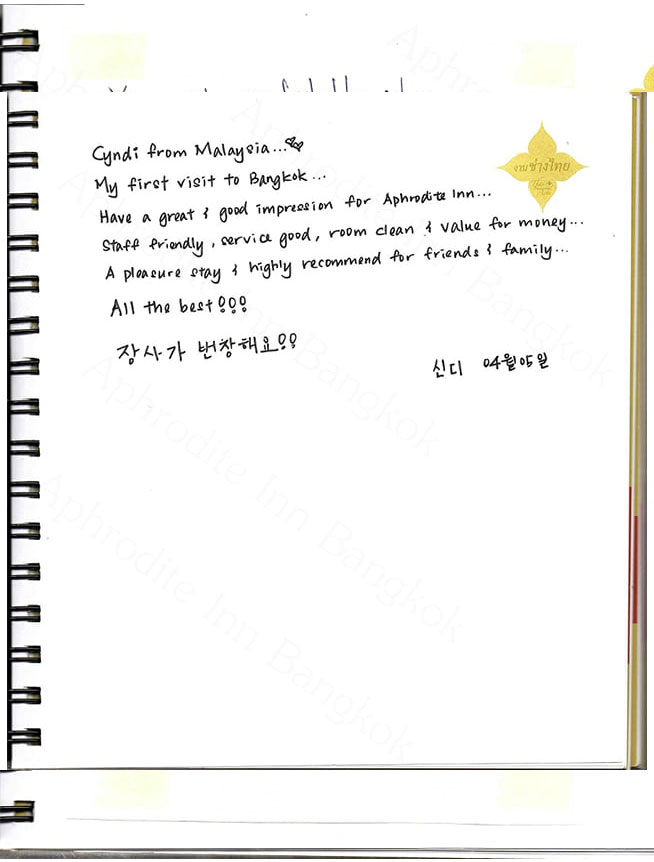 Cyndi from Malaysia...
งานช่างไทย
My first visit to Bangkok...
Have a great & good impression for Aphrodite Inn...
Staff friendly, service good, room clean & value for money...
A pleasure stay & highly recommend for friends & family...
All the best!!!
장사가 번창해요!!
신디 04월05일
Aphrodite Inn Bangkok
Aphrodite Inn Bangkok
Aphrodite Inn Bangkok